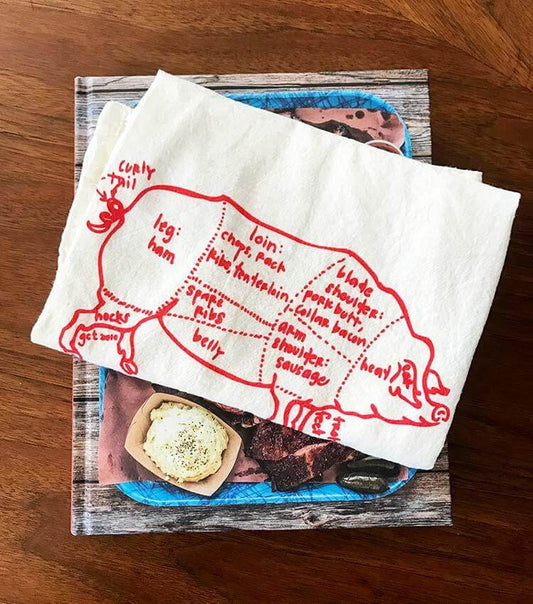 curly
tail
leg:
ham
loin:
chops, rack
ribs, tenderloin
blade
shoulder:
pork butt,
collar bacon
spare
ribs
arm
shoulder:
sausage
head
belly
hocks
gct 2010